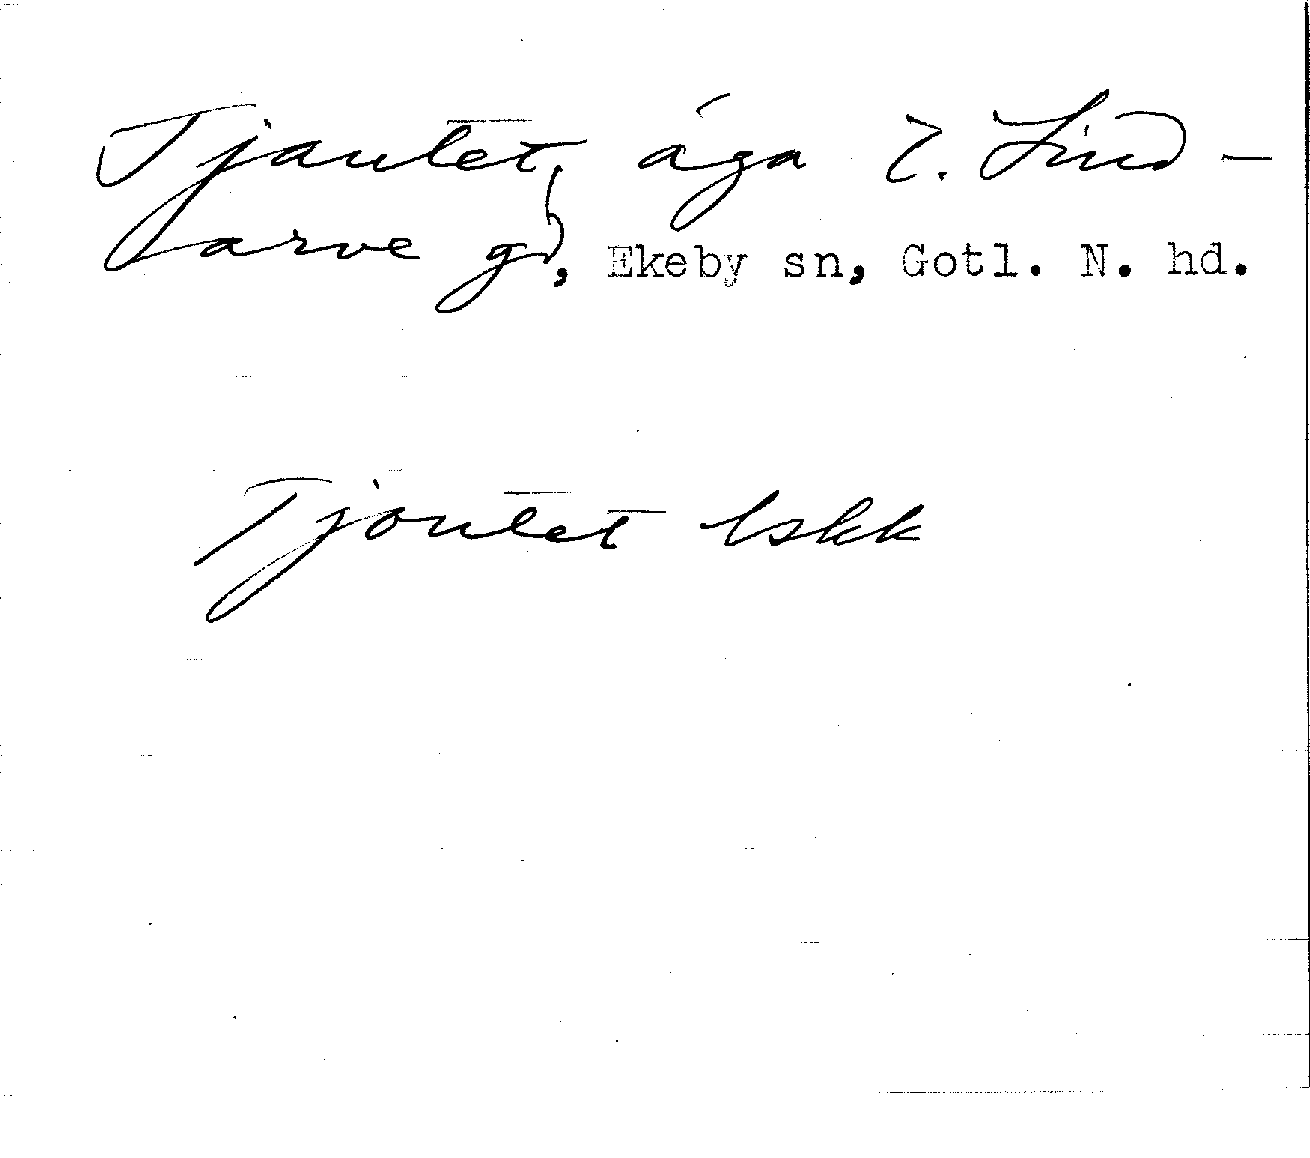 Tjautet, åga t. Lind-
arve gd, Ekeby sn, Gotl. N. hd.
Tjoutet Eskk